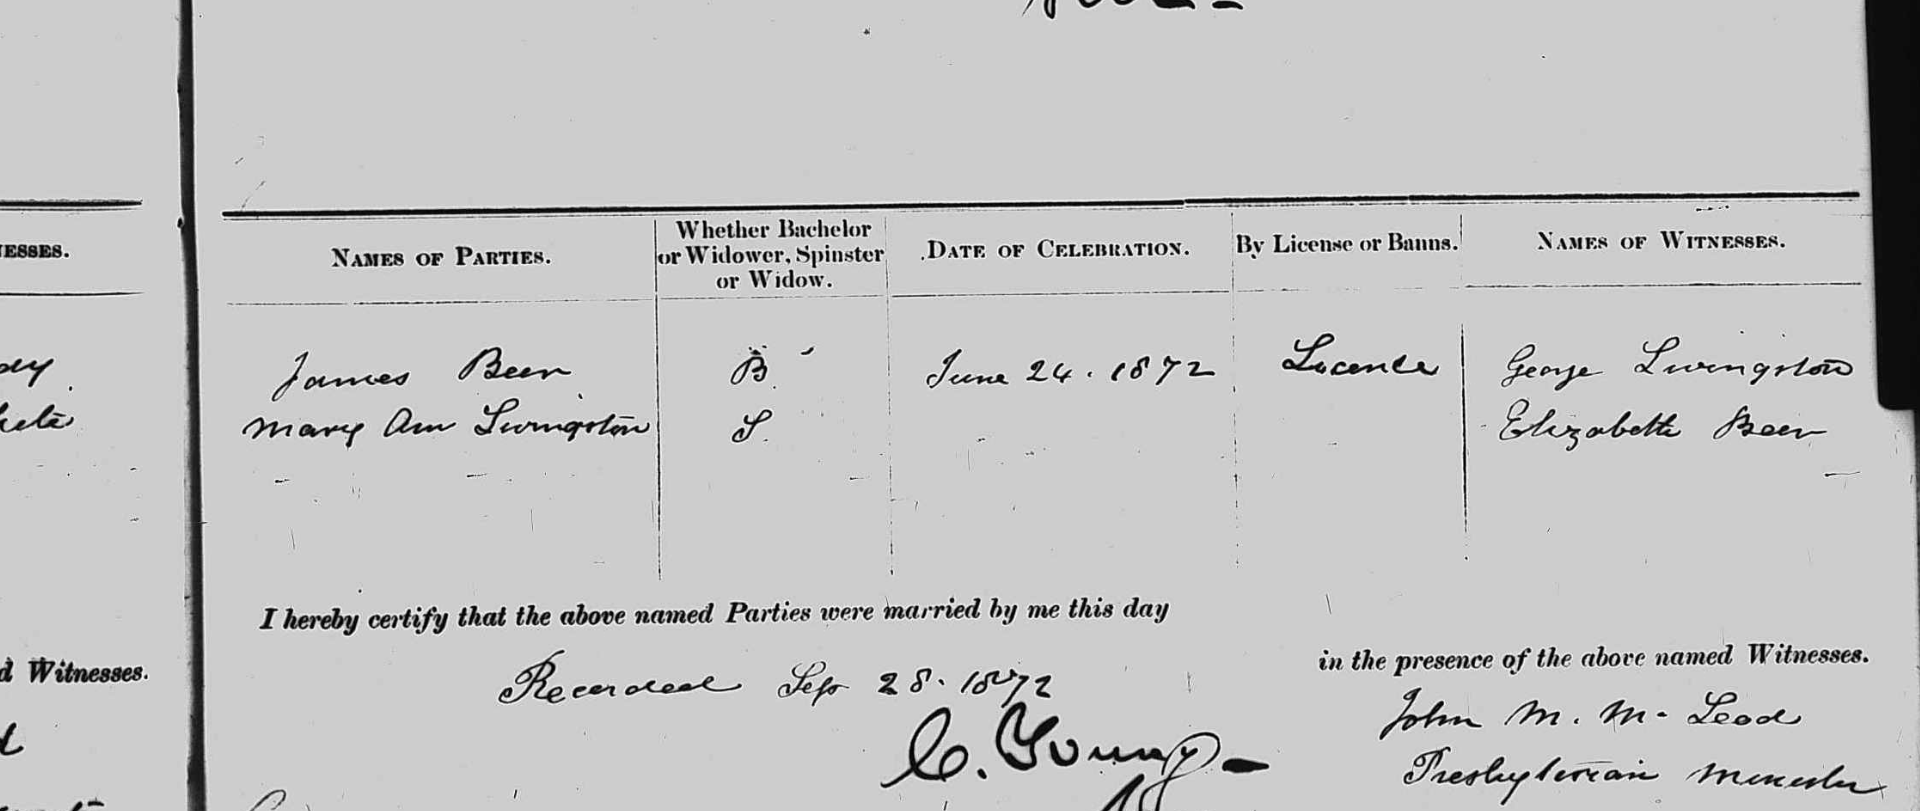 NAMES OF PARTIES.
Whether Bachelor or Widower, Spinster or Widow.
DATE OF CELEBRATION.
By License or Banns.
NAMES OF WITNESSES.
James Beer B June 24. 1872 Licence George Livingston
Mary Ann Livingston S. Elizabeth Beer
I hereby certify that the above named Parties were married by me this day
in the presence of the above named Witnesses.
d Witnesses.
Recorded Sep 28. 1872
C. Young
John M. Mc Leod
Presbyterian Minister